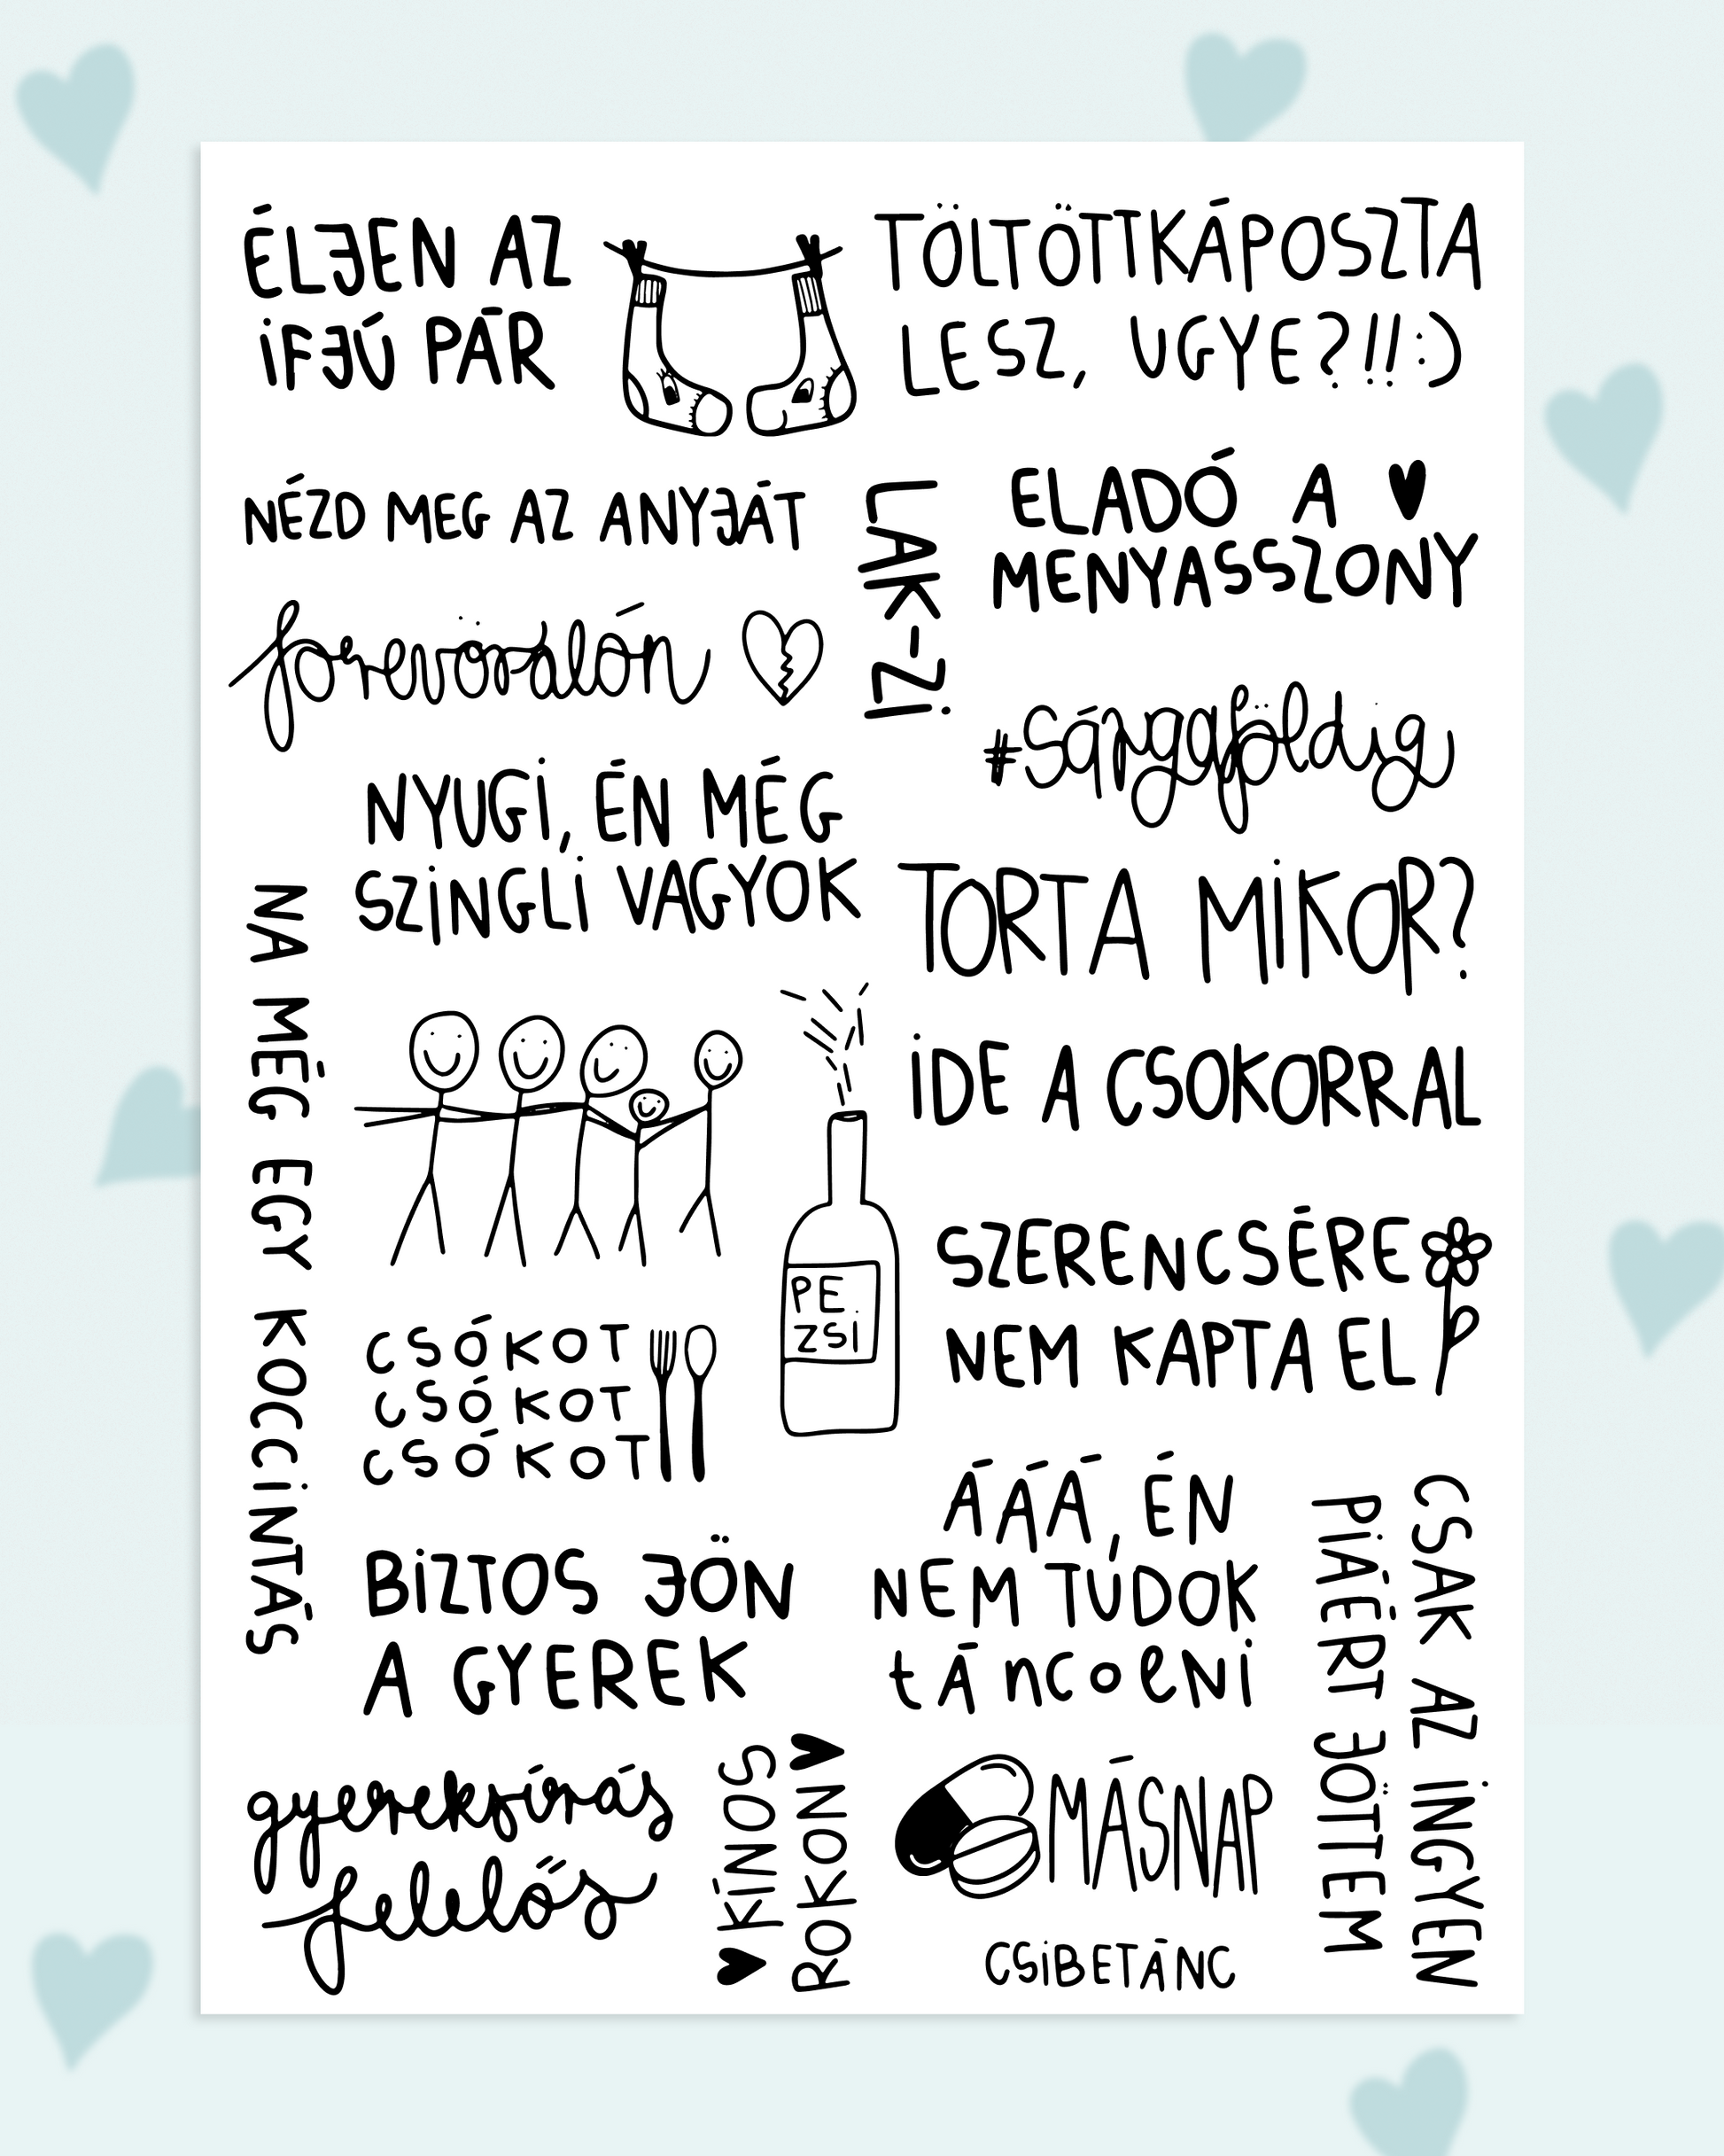 ÉLJEN AZ
IFJÚ PÁR
TÖLTÖTTKÁPOSZTA
LESZ, UGYE?!!:)
NÉZD MEG AZ ANYJÁT
LAK-ZI
ELADÓ A
MENYASSZONY
forevöralón
#sárgaföldig
NYUGI, ÉN MÉG
SZINGLI VAGYOK
TORTA MIKOR?
NA MÉG EGY KOCCINTÁS
IDE A CSOKORRAL
PE
ZSI
SZERENCSÉRE
NEM KAPTA EL
CSÓKOT
CSÓKOT
CSÓKOT
BIZTOS JÖN
A GYEREK
ÁÁÁ, ÉN
NEM TUDOK
tÁncolNi
CSAK AZ INGYEN
PIÁÉRT JÖTTEM
gyereksírás
felelős
KÍNOS
ROKON
MÁSNAP
CSIBETÁNC